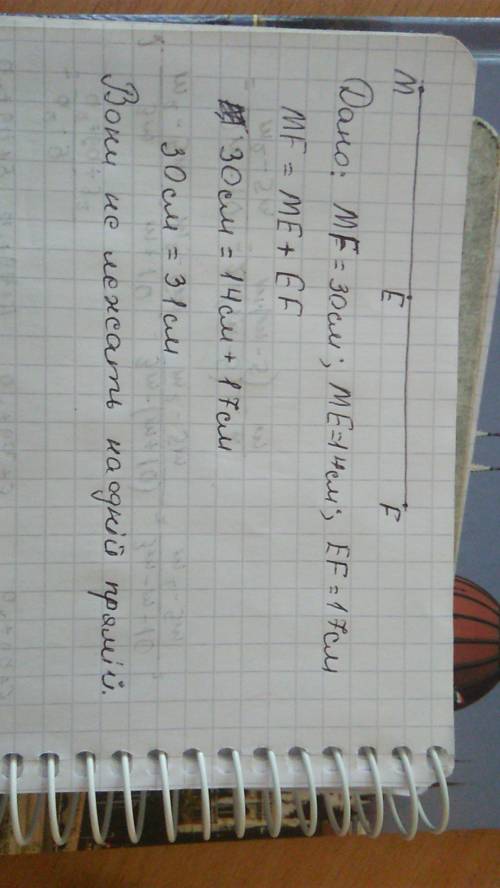 M E F
Дано: MF = 30см; ME=14см; EF=17см
MF = ME + EF
30см = 14см + 17см
30см = 31см
Вони не лежать на одній прямій.